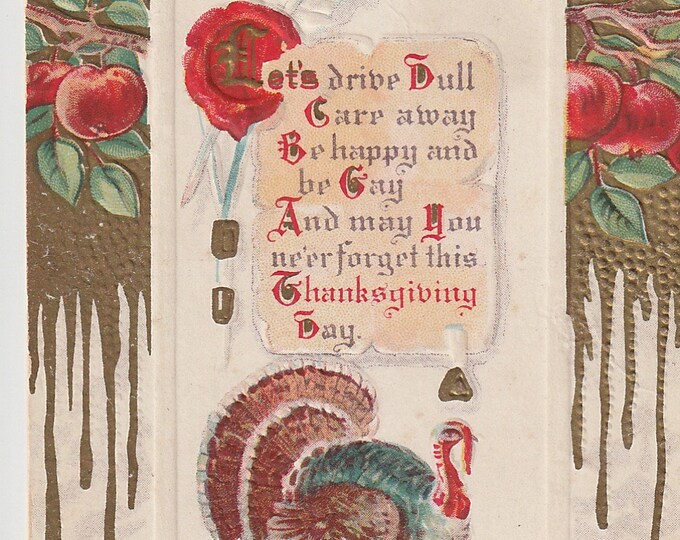 Let's drive Dull
Care away
Be happy and
be Gay
And may You
ne'er forget this
Thanksgiving
Day.